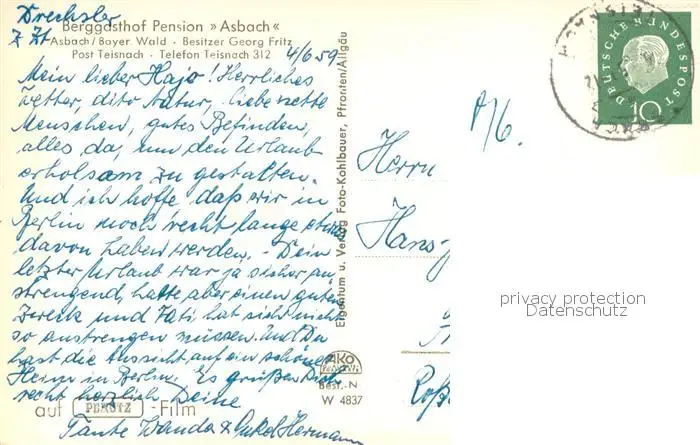 Drechsler
z. Zt.
Berggasthof Pension »Asbach«
Asbach/Bayer Wald · Besitzer Georg Fritz
Post Teisnach · Telefon Teisnach 312
4/6.59.
Mein lieber Hajo! Herrliches
Wetter, dito Natur, liebe nette
Menschen, gutes Befinden,
alles da, um den Urlaub
erholsam zu gestalten.
Und ich hoffe daß wir in
Berlin noch recht lange etwas
davon haben werden. - Dein
letzter Urlaub war ja sicher an
strengend, hatte aber einen guten
Zweck und Vati hat sich nicht
so anstrengen müssen. Und Du
hast die Aussicht auf ein schönes
Heim in Berlin. Es grüßen Dich
recht herzlich Deine
Tante Wanda & Onkel Hermann
auf PERUTZ -Film
Eigentum u. Verlag Foto-Kohlbauer, Pfronten/Allgäu
AKO
Best.-N
W 4837
Herrn
Hans-J
DEUTSCHE BUNDESPOST
10
privacy protection
Datenschutz